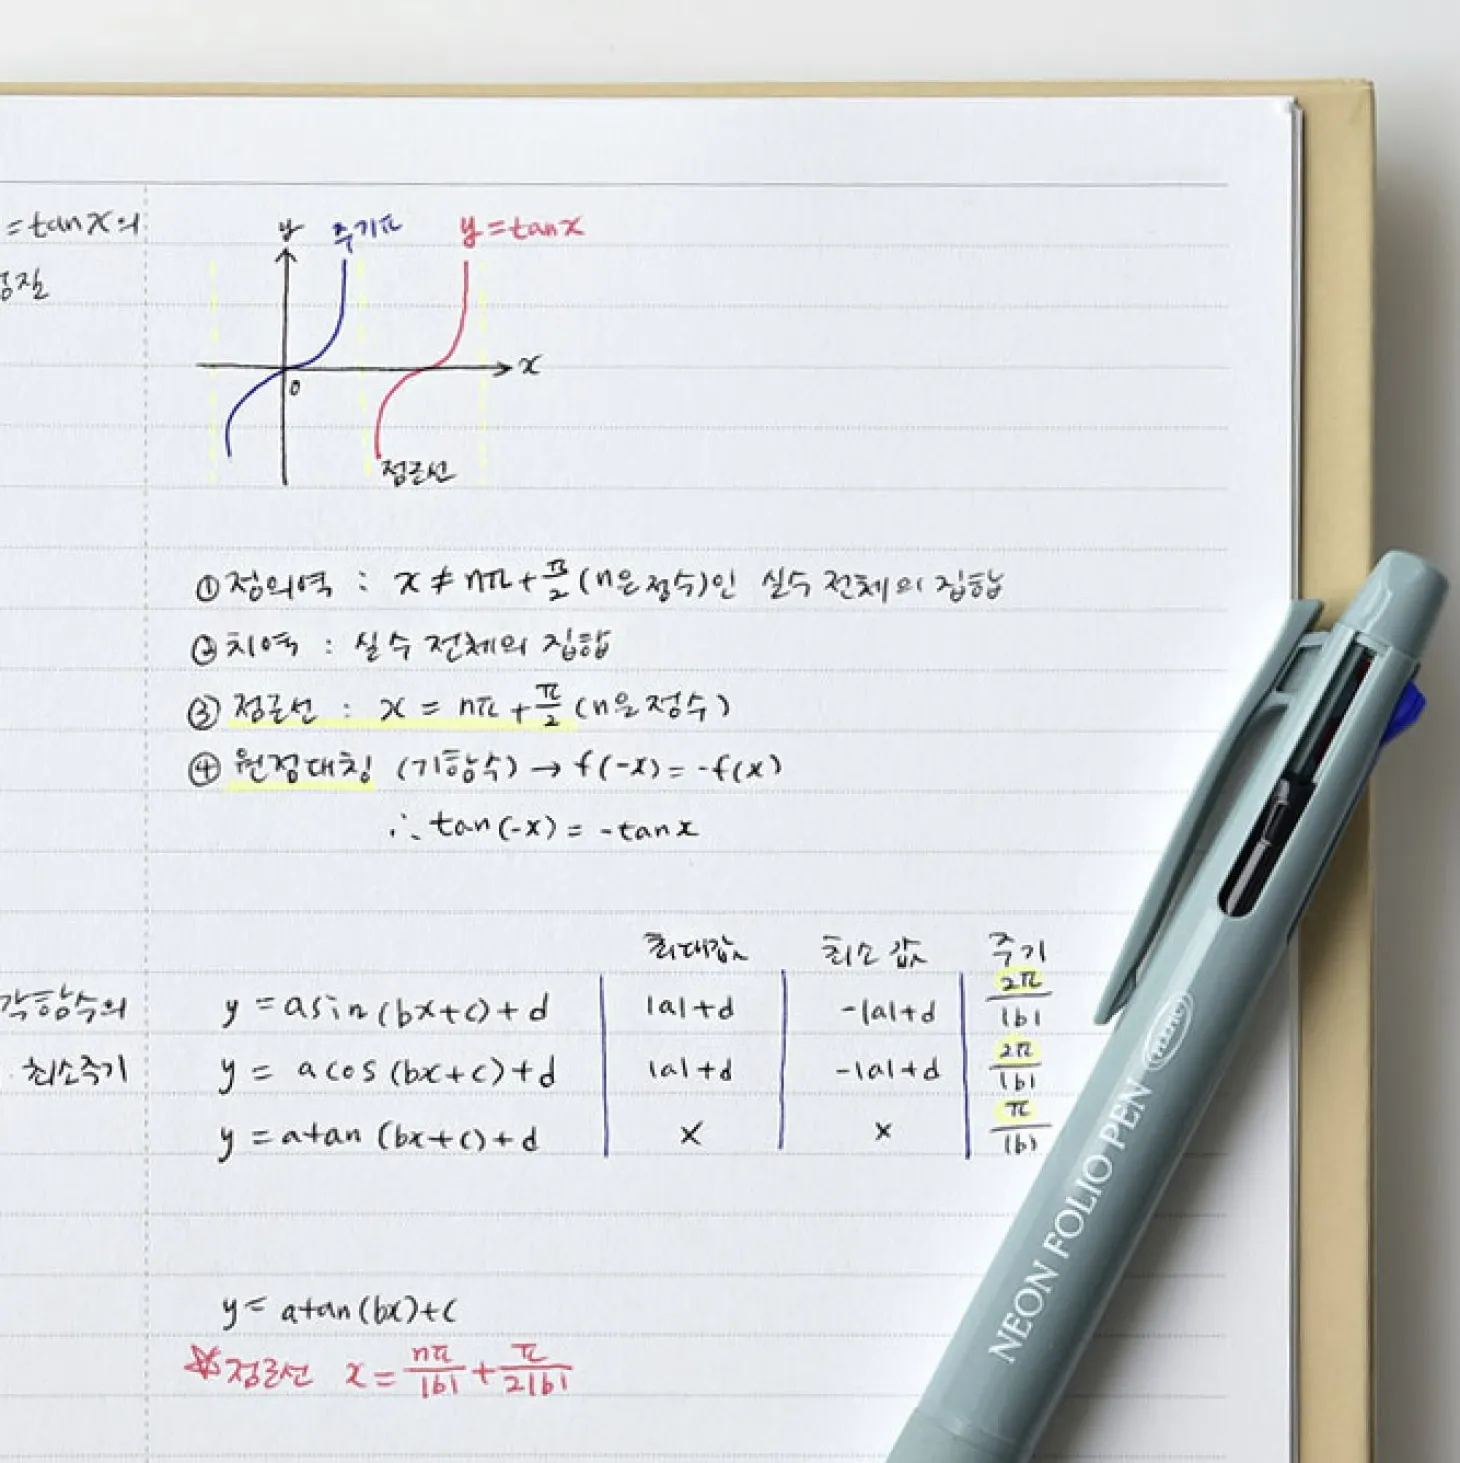 =tanx의
성질
y
주기π
y=tanx
x
0
점근선
① 정의역 : x≠nπ+π/2 (n은 정수)인 실수 전체의 집합
② 치역 : 실수 전체의 집합
③ 점근선 : x = nπ+π/2 (n은 정수)
④ 원점대칭 (기함수) → f(-x)=-f(x)
∴ tan(-x) = -tanx
최대값 최소값 주기
각함수의
최소주기
y=asin(bx+c)+d |a|+d -|a|+d 2π/|b|
y= acos(bx+c)+d |a|+d -|a|+d 2π/|b|
y=atan(bx+c)+d × × π/|b|
y= atan(bx)+c
☆점근선 x= nπ/|b| + π/2|b|
NEON FOLIO PEN